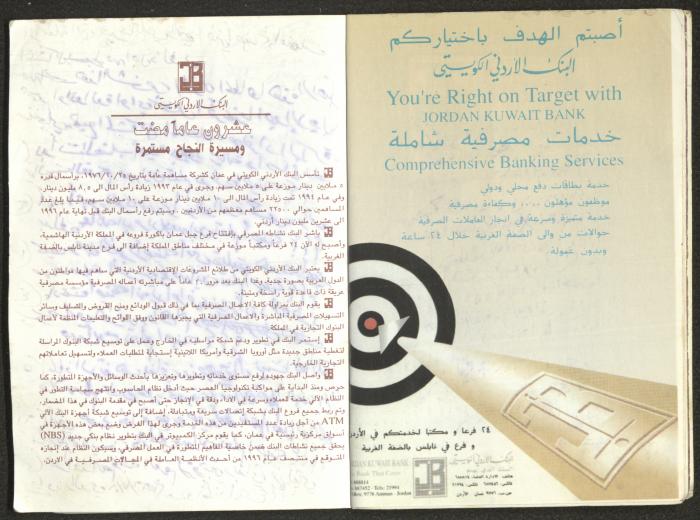 البنك الأردني الكويتي
عشرون عاماً مضت
ومسيرة النجاح مستمرة
تأسس البنك الأردني الكويتي في عمان كشركة مساهمة عامة بتاريخ ١٩٧٦/١٠/٢٥، برأسمال قدره
٥ ملايين دينار موزعة على ٥ ملايين سهم، وجرى في عام ١٩٩٢ زيادة رأس المال الى ٨,٥ مليون دينار،
وفي عام ١٩٩٤ تمت زيادة رأس المال الى ١٠ ملايين دينار موزعة على ١٠ ملايين سهم، فيما يبلغ عدد
المساهمين حوالي ٢٢٥٠٠ مساهم معظمهم من الأردنيين. وسيتم رفع رأسمال البنك قبل نهاية عام ١٩٩٦
الى عشرين مليون دينار أردني.
باشر البنك نشاطه المصرفي بإفتتاح فرع جبل عمان باكورة فروعه في المملكة الأردنية الهاشمية،
وأصبح له الآن ٢٤ فرعاً ومكتباً موزعة في مختلف مناطق المملكة إضافة الى فرع مدينة نابلس بالضفة
الغربية.
يعتبر البنك الأردني الكويتي من طلائع المشروعات الإقتصادية الأردنية التي ساهم فيها مواطنون من
الدول العربية بصورة جدية، وغدا البنك بعد مرور ٢٠ عاماً على مباشرته أعماله المصرفية مؤسسة مصرفية
عريقة ذات قاعدة قوية، راسخة ومتينة.
يقوم البنك بمزاولة كافة الأعمال المصرفية بما في ذلك قبول الودائع ومنح القروض والتسليف وسائر
التسهيلات المصرفية المباشرة والأعمال المصرفية التي يجيزها القانون ووفق اللوائح والتعليمات المنظمة لأعمال
البنوك التجارية في المملكة.
إستمر البنك في تطوير ودعم شبكة مراسليه في الخارج وعمل على توسيع شبكة البنوك المراسلة
لتغطية مناطق جديدة مثل أوروبا الشرقية وأمريكا اللاتينية إستجابة لمتطلبات العملاء ولتسهيل تعاملاتهم
التجارية الخارجية.
واصل البنك جهوده لرفع مستوى خدماته وتطويرها وتعزيزها بأحدث الوسائل والأجهزة المتطورة، كما
حرص ومنذ البداية على مواكبة تكنولوجيا العصر حيث أدخل نظام الحاسوب وانتهج سياسة التطور في
النظام الآلي خدمة للعملاء وسرعة في الأداء ودقة في الإنجاز حتى أصبح في مقدمة البنوك في هذا المضمار،
وتم ربط جميع فروع البنك بشبكة إتصالات سريعة ومتبادلة، إضافة إلى توسيع شبكة أجهزة البنك الآلي
ATM من أجل زيادة عدد المستفيدين من هذه الخدمة وجرى لهذا الغرض وضع بعض هذه الأجهزة في
أسواق مركزية رئيسية في عمان، كما يقوم مركز الكمبيوتر في البنك بتطوير نظام بنكي جديد (NBS)
يحقق جميع تطلعات البنك ضمن خاصية المفاهيم المتطورة في العمل المصرفي، وسيكون النظام عند إنجازه
المتوقع في منتصف عام ١٩٩٦ من أحدث الأنظمة العاملة في المجالات المصرفية في الأردن.
أصبتم الهدف باختياركم
البنك الأردني الكويتي
You're Right on Target with
JORDAN KUWAIT BANK
خدمات مصرفية شاملة
Comprehensive Banking Services
خدمة بطاقات دفع محلي ودولي
موظفون مؤهلون .... وكفاءة مصرفية
خدمة متميزة وسرعة في إنجاز العاملات الصرفية
حوالات من والى الضفة الغربية خلال ٢٤ ساعة
وبدون عمولة.
٢٤ فرعا و مكتبا لخدمتكم في الأردن
و فرع في نابلس بالضفة الغربية
JORDAN KUWAIT BANK
البنك الأردني الكويتي
Bank That Cares
687452 - Tlx: 21994
Box. 9776 Amman - Jordan